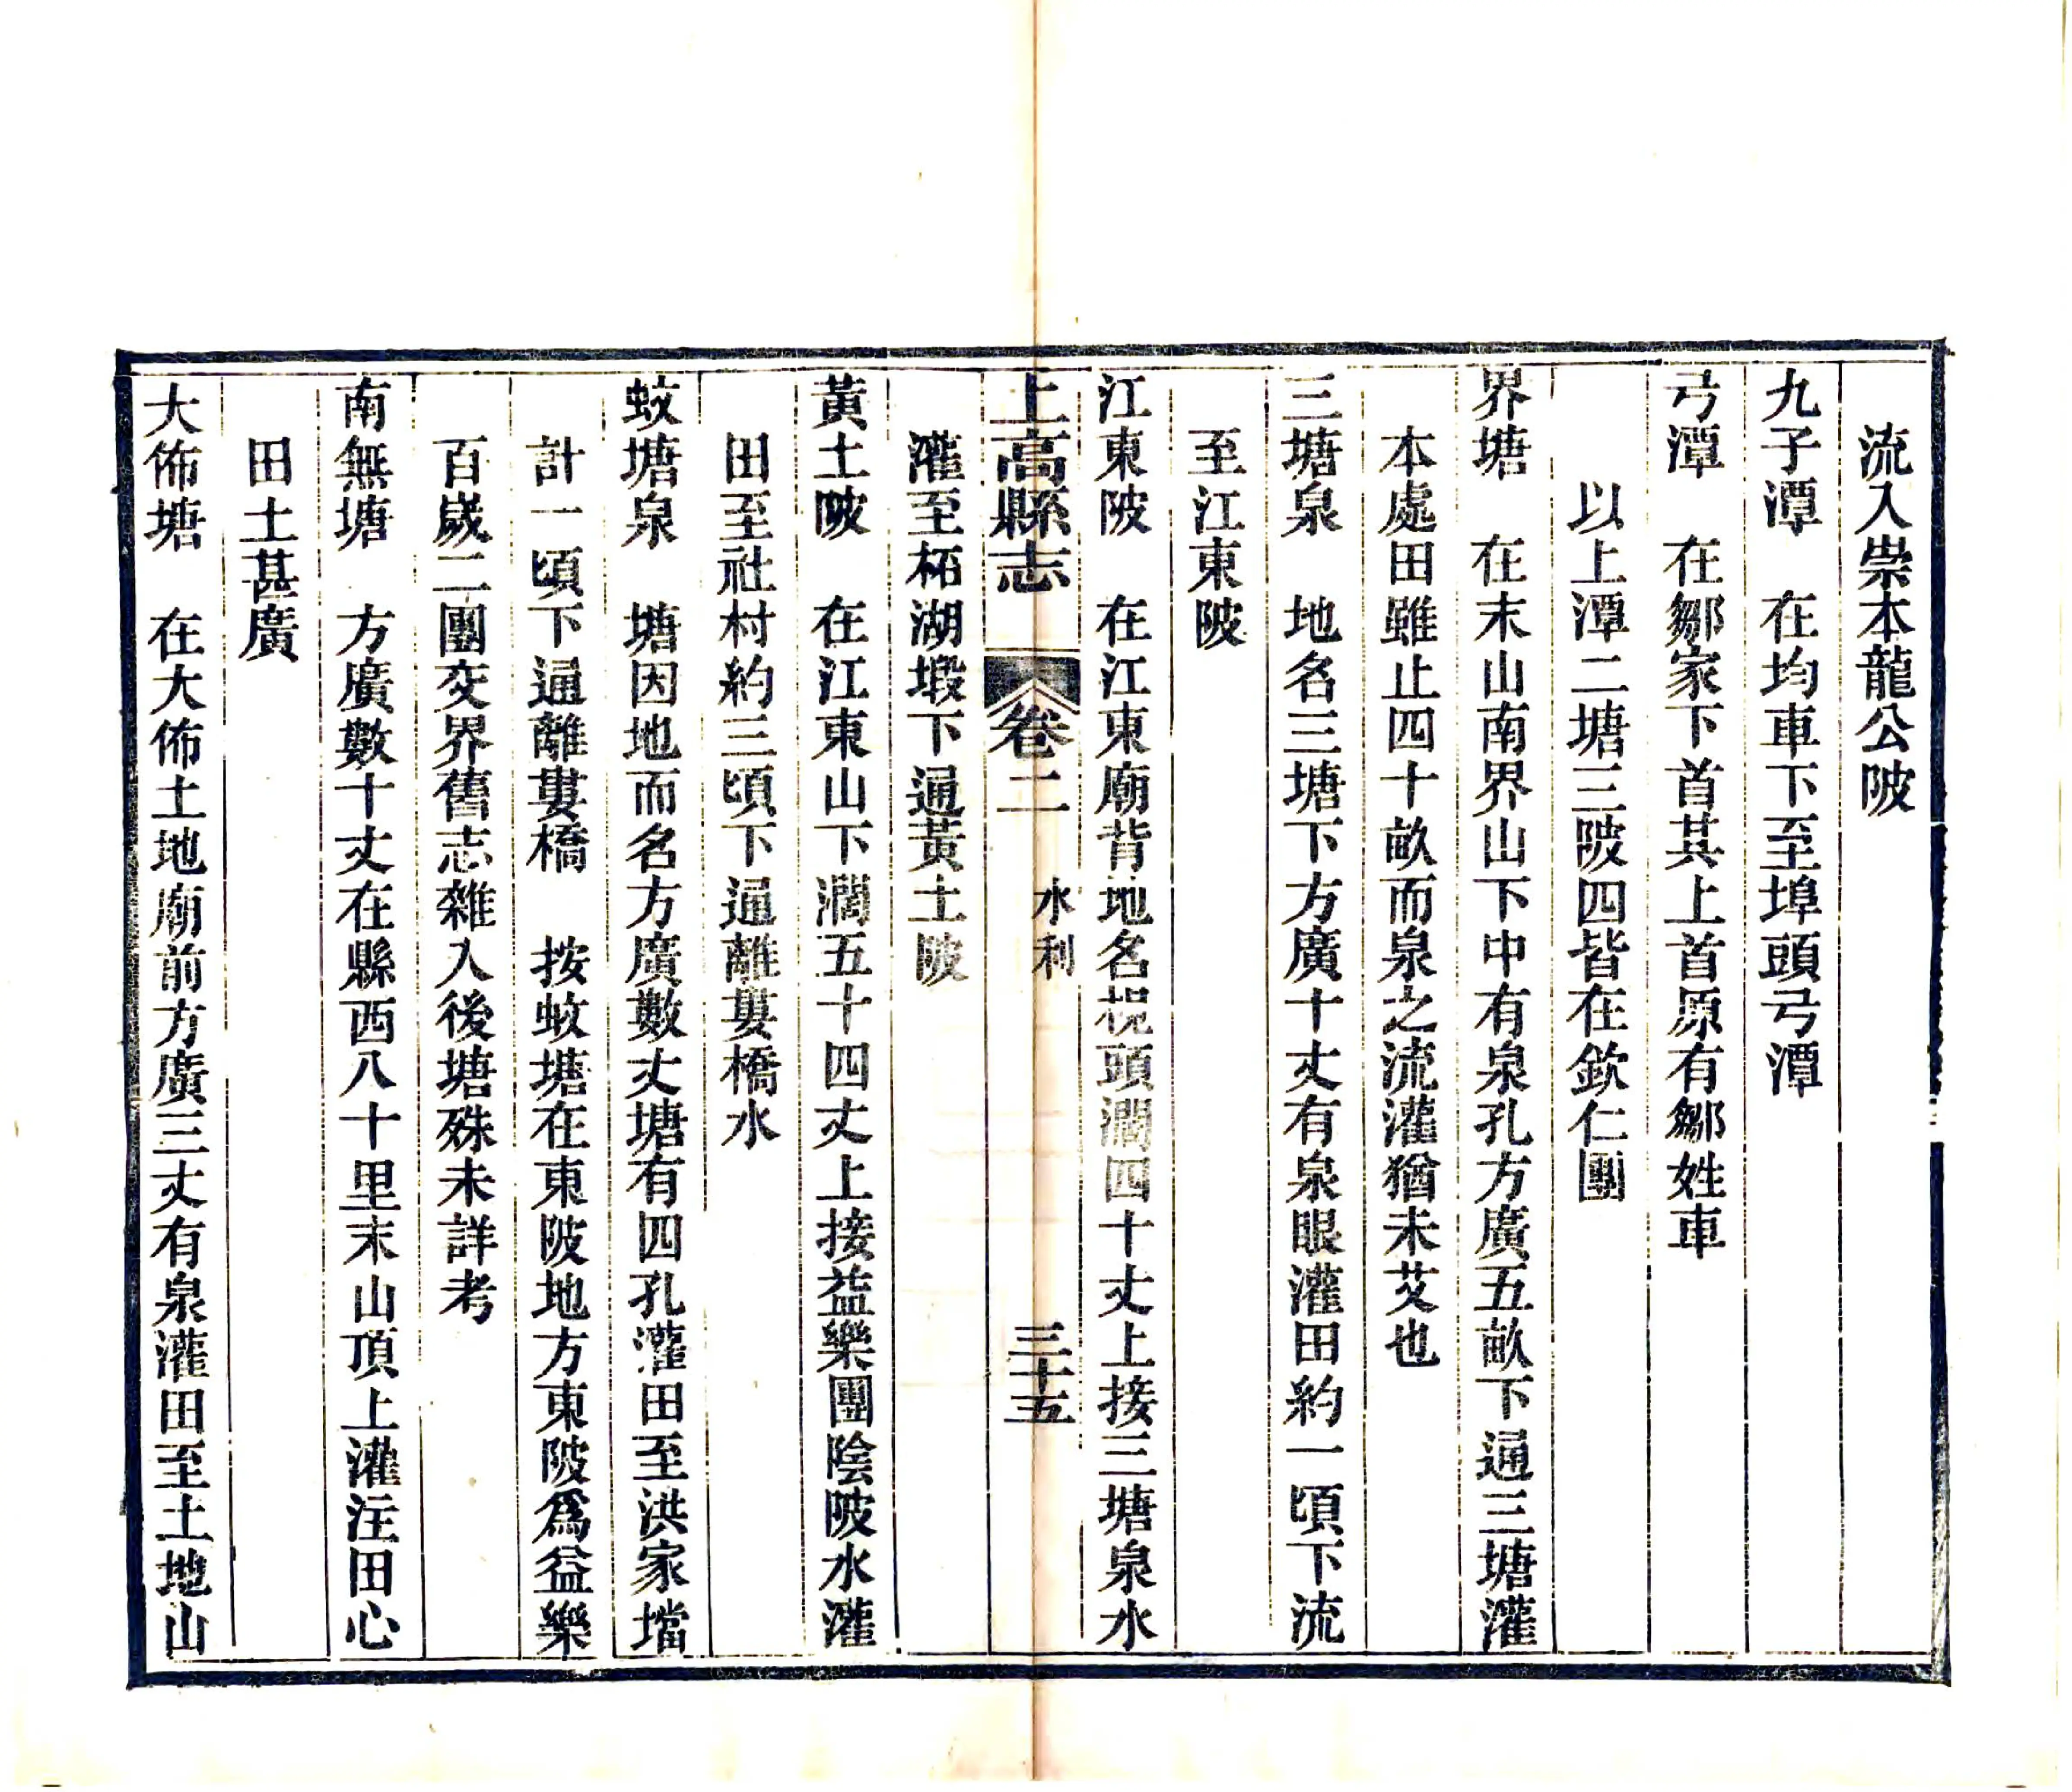 流入崇本龍公陂
九子潭　在均車下至埠頭弓潭
弓潭　在鄒家下首其上首原有鄒姓車
以上潭二塘三陂四皆在欽仁團
界塘　在末山南界山下中有泉孔方廣五畝下通三塘灌
本處田雖止四十畝而泉之流灌猶未艾也
三塘泉　地名三塘下方廣十丈有泉眼灌田約一頃下流
至江東陂
江東陂　在江東廟背地名枧頭濶四十丈上接三塘泉水
上高縣志　卷二　水利　三十五
灌至栢湖塅下通黃土陂
黃土陂　在江東山下濶五十四丈上接益樂團陰陂水灌
田至社村約三頃下通離婁橋水
蚊塘泉　塘因地而名方廣數丈塘有四孔灌田至洪家壋
計一頃下通離婁橋　按蚊塘在東陂地方東陂爲益樂
百歲二團交界舊志雜入後塘殊未詳考
南無塘　方廣數十丈在縣西八十里末山頂上灌注田心
田土甚廣
大佈塘　在大佈土地廟前方廣三丈有泉灌田至土地山